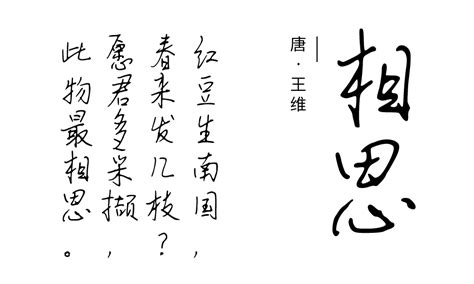 相思
唐·王维
红豆生南国，
春来发几枝？
愿君多采撷，
此物最相思。